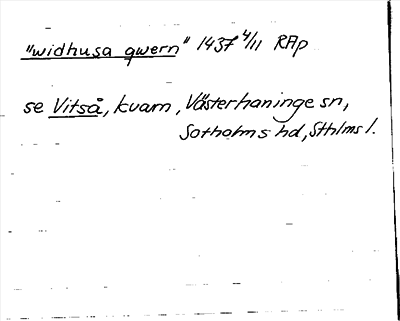 "widhusa qwern" 1437 4/11 RAp
se Vitså, kvarn, Västerhaninge sn,
Sotholms hd, Sthlms l.